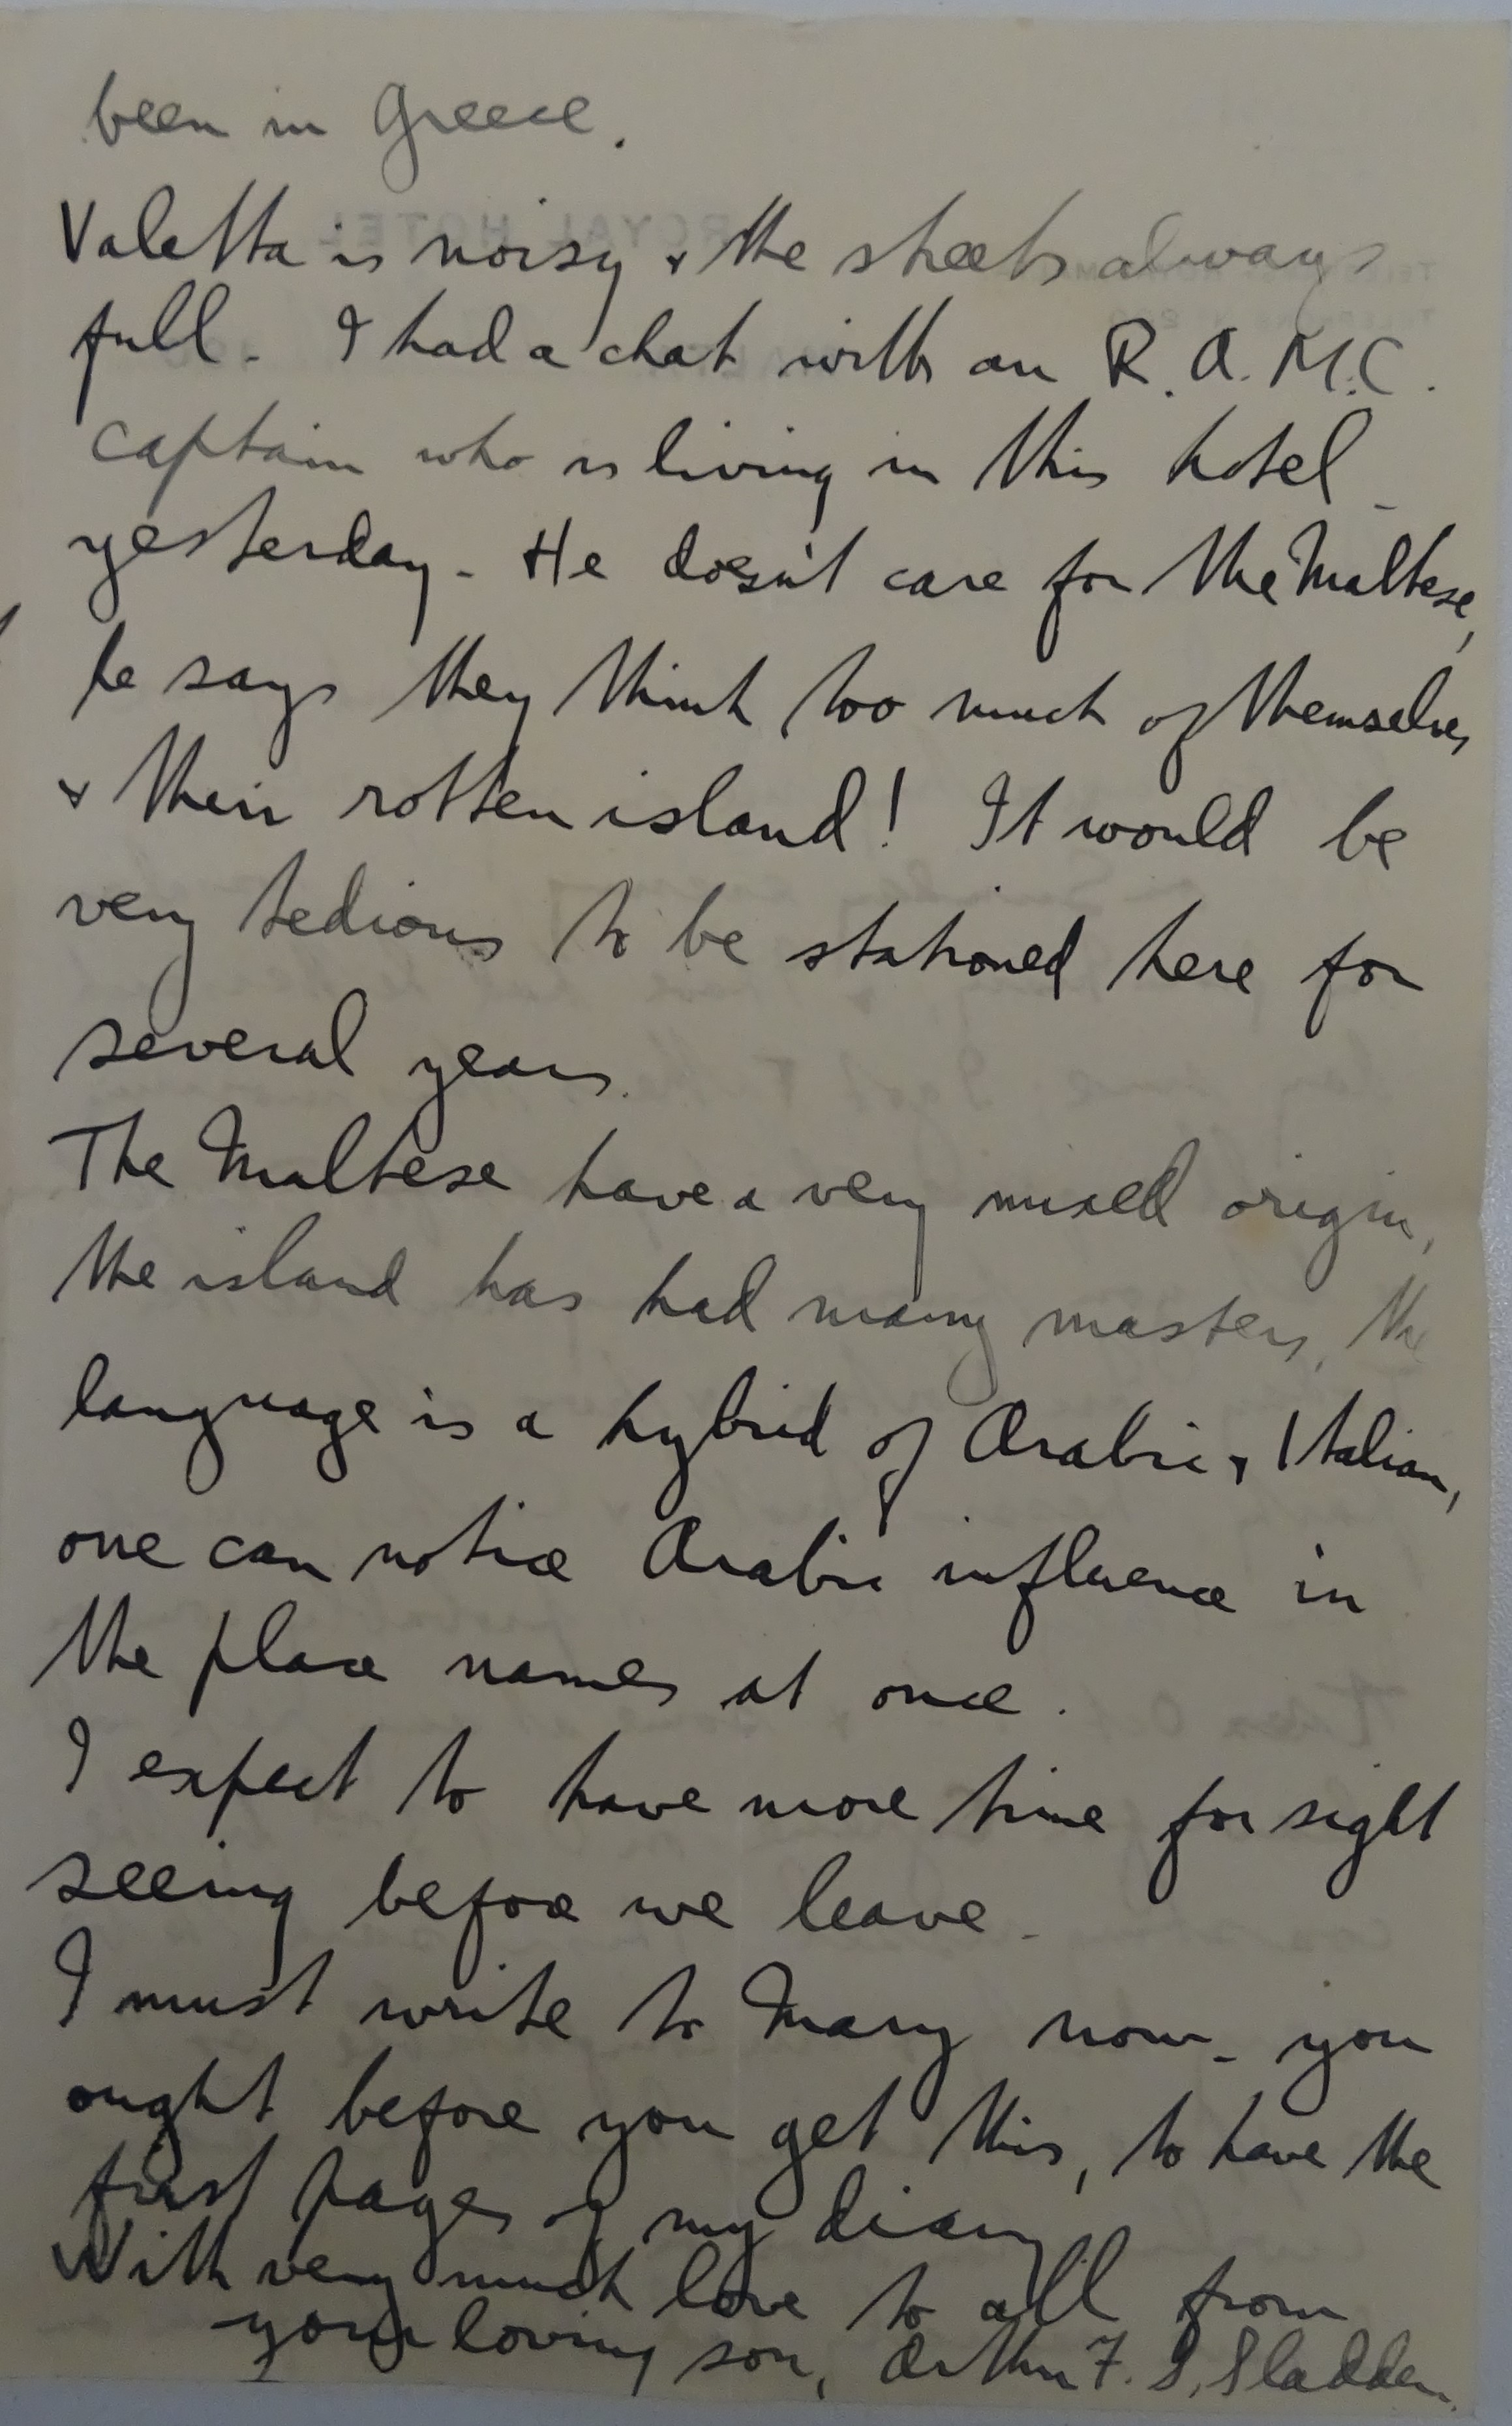 been in Greece.
Valetta is noisy & the streets always
full. I had a chat with an R.A.M.C.
captain who is living in this hotel
yesterday. He doesn't care for the Maltese,
he says they think too much of themselves
& their rotten island! It would be
very tedious to be stationed here for
several years.
The Maltese have a very mixed origin,
the island has had many masters, the
language is a hybrid of Arabic & Italian,
one can notice Arabic influence in
the place names at once.
I expect to have more time for sight
seeing before we leave.
I must write to Mary now - you
ought before you get this, to have the
first pages of my diary
With very much love to all from
your loving son, Arthur F. S. Sladden.
ROYAL HOTEL